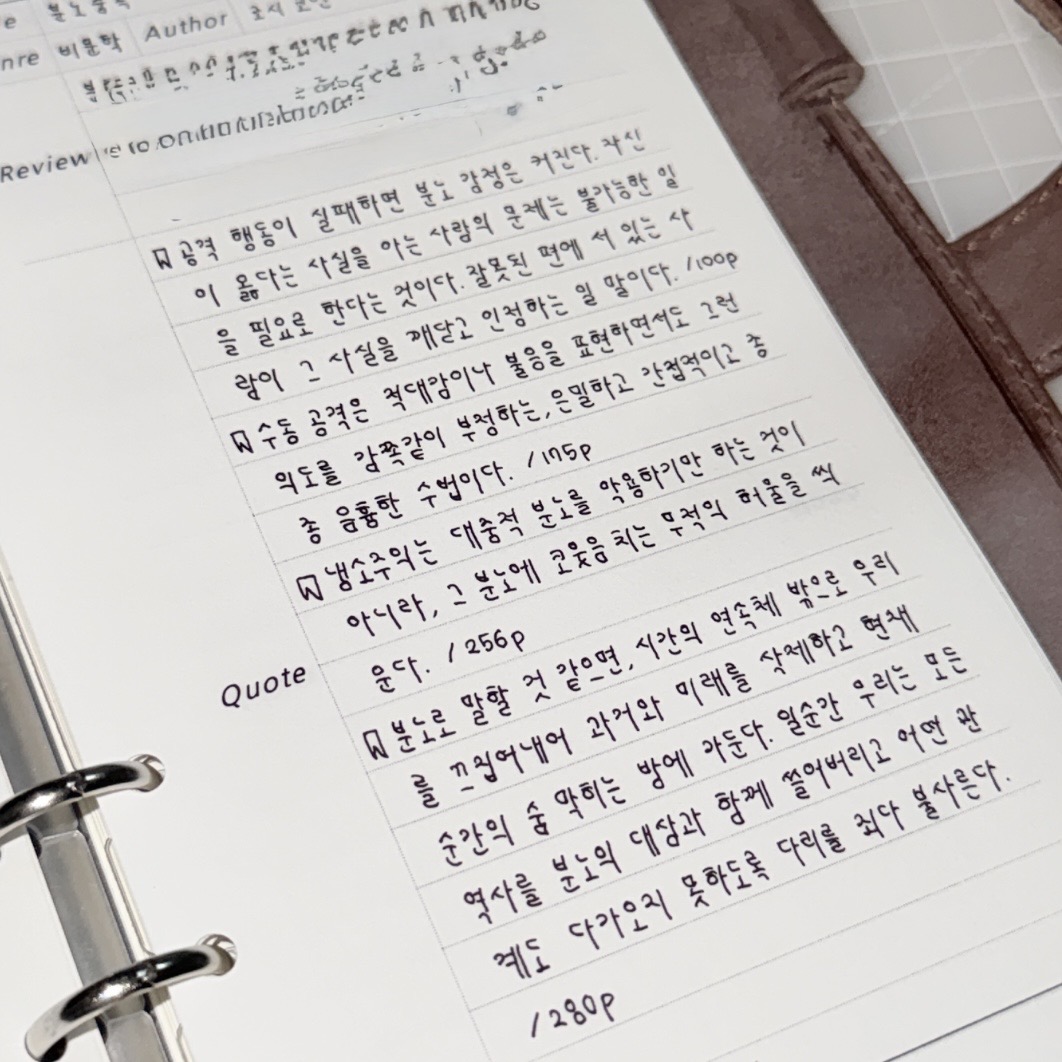 Genre 비문학 Author
Review
공격 행동이 실패하면 분노 감정은 커진다. 자신
이 옳다는 사실을 아는 사람의 문제는 불가능한 일
을 필요로 한다는 것이다. 잘못된 편에 서 있는 사
람이 그 사실을 깨닫고 인정하는 일 말이다. /100p
수동 공격은 적대감이나 불응을 표현하면서도 그런
의도를 감쪽같이 부정하는, 은밀하고 간접적이고 종
종 음흉한 수법이다. /175p
냉소주의는 대중적 분노를 악용하기만 하는 것이
아니라, 그 분노에 코웃음 치는 무적의 허울을 씌
Quote 운다. /256p
분노로 말할 것 같으면, 시간의 연속체 밖으로 우리
를 끄집어내어 과거와 미래를 삭제하고 현재
순간의 숨 막히는 방에 가둔다. 일순간 우리는 모든
역사를 분노의 대상과 함께 쓸어버리고 어떤 관
계도 다가오지 못하도록 다리를 죄다 불사른다.
/280p